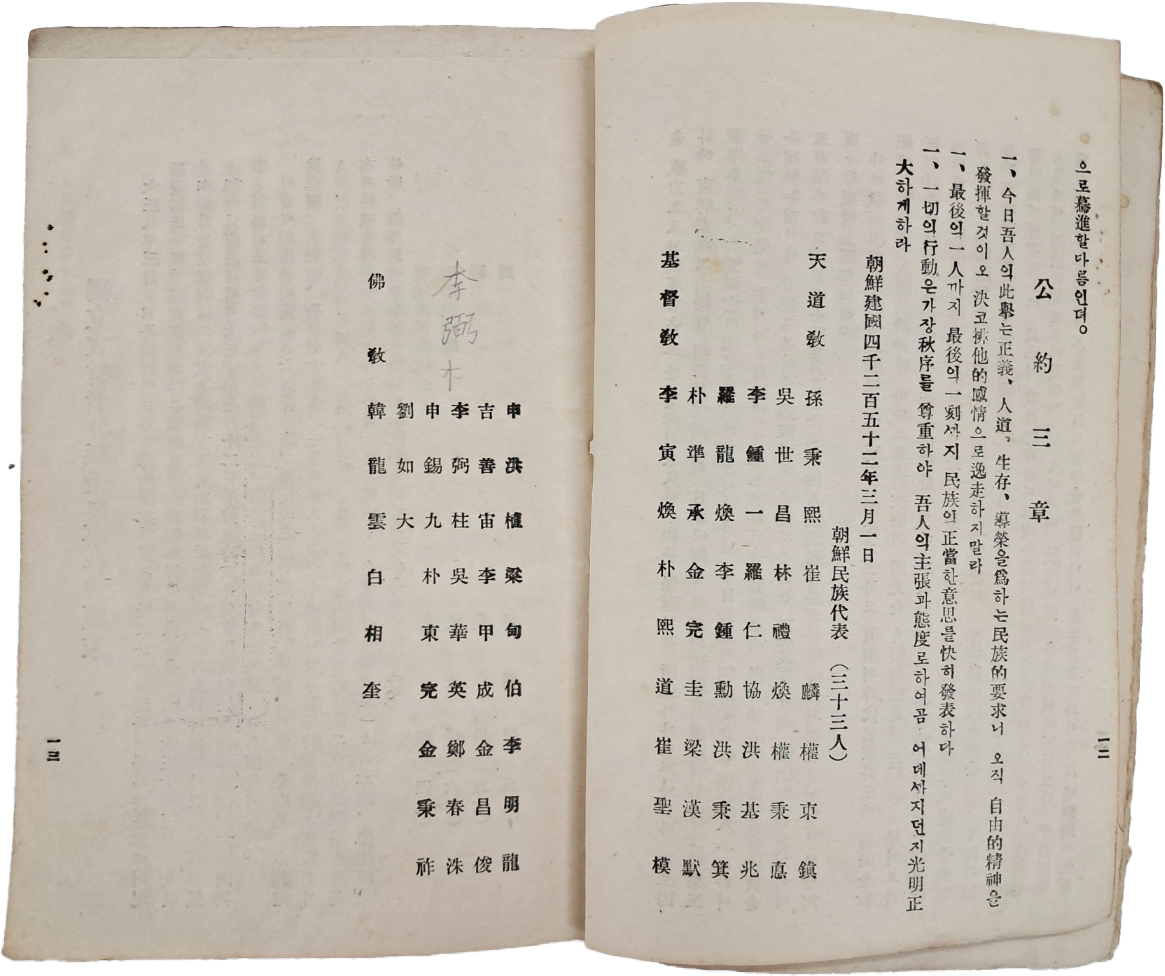 으로驀進할다름인뎌。
公約三章
一、今日吾人의此擧는正義、人道、生存、導榮을爲하는民族的要求니 오직 自由的精神을
發揮할것이오 決코排他的感情으로逸走하지말라
一、最後의一人까지 最後의一刻ᄭᅡ지 民族의正當한意思를快히發表하다
一、一切의行動은가장秋序를 尊重하야 吾人의主張과態度로하여곰 어데ᄭᅡ지던지光明正
大하게하라
朝鮮建國四千二百五十二年三月一日
朝鮮民族代表 (三十三人)
天道敎 孫秉熙 崔麟 權東鎭
吳世昌 林禮煥 權秉悳
李鍾一 羅仁協 洪基兆
羅龍煥 李鍾勳 洪秉箕
朴準承 金完圭 梁漢默
基督敎 李寅煥 朴熙道 崔聖模
一二
申洪植 梁甸伯 李明龍
吉善宙 李甲成 金昌俊
李弼柱 吳華英 鄭春洙
申錫九 朴東完 金秉祚
劉如大
李弼
佛敎 韓龍雲 白相奎
一三